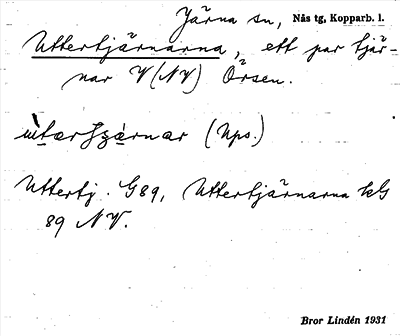 Järna sn, Nås tg, Kopparb. l.
Uttertjärnarna, ett par tjär-
nar V (NV) Örsen.
(Ups.)
Uttertj. G89, Uttertjärnarna kG
89 NV.
Bror Lindén 1931